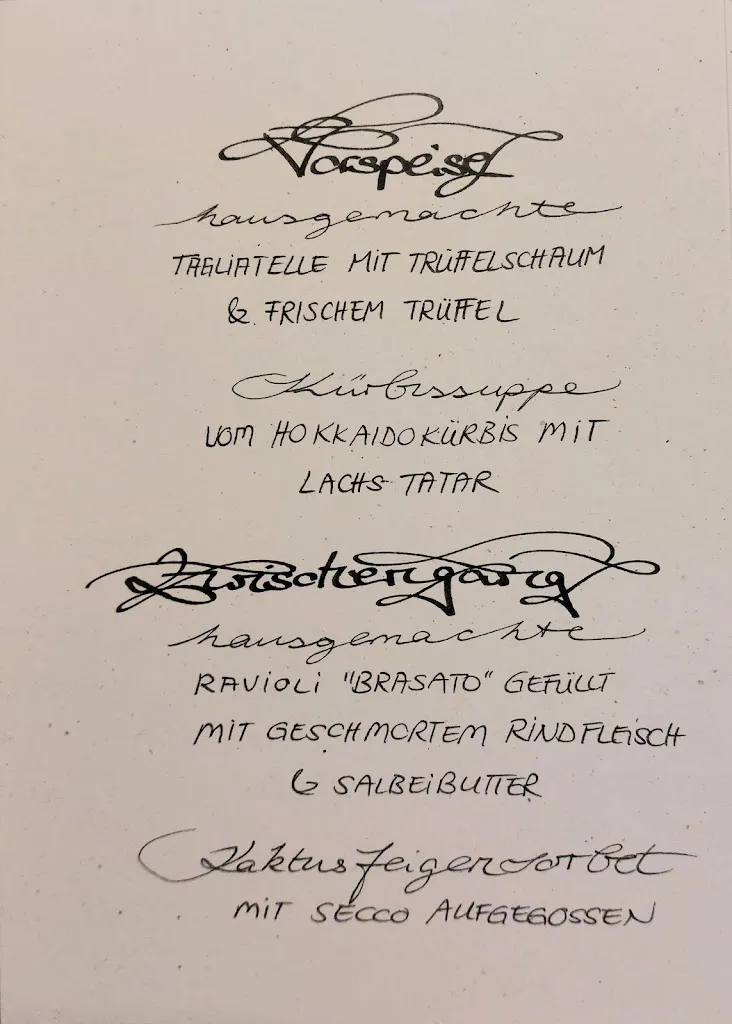 Vorspeise
hausgemachte
TAGLIATELLE MIT TRÜFFELSCHAUM
& FRISCHEM TRÜFFEL
Kürbissuppe
VOM HOKKAIDOKÜRBIS MIT
LACHS TATAR
Zwischengang
hausgemachte
RAVIOLI "BRASATO" GEFÜLLT
MIT GESCHMORTEM RINDFLEISCH
& SALBEIBUTTER
Kaktusfeigensorbet
MIT SECCO AUFGEGOSSEN